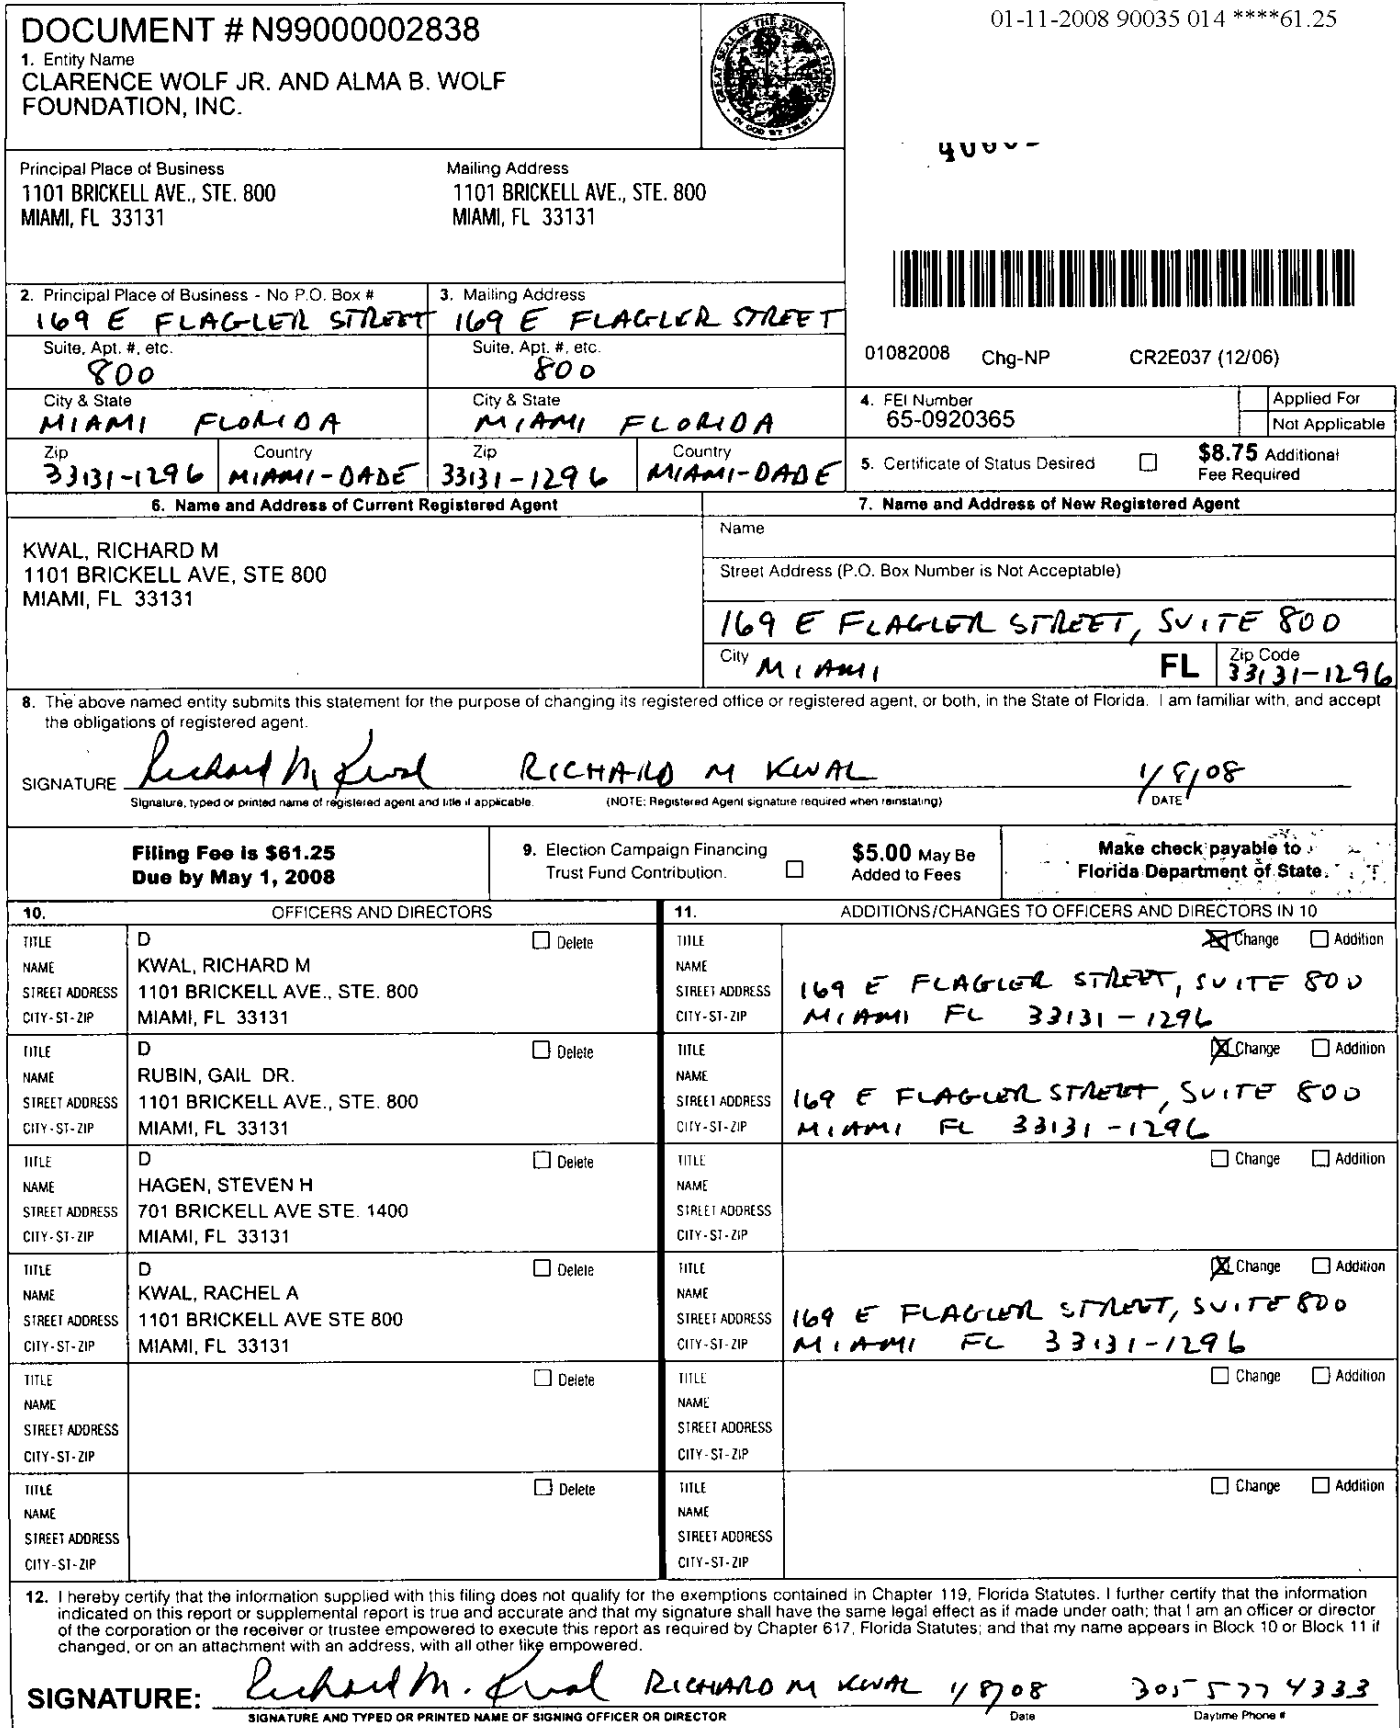 01-11-2008 90035 014 ****61.25
DOCUMENT # N99000002838
1. Entity Name
CLARENCE WOLF JR. AND ALMA B. WOLF
FOUNDATION, INC.
GREAT SEAL OF THE STATE OF FLORIDA
IN GOD WE TRUST
Principal Place of Business
1101 BRICKELL AVE., STE. 800
MIAMI, FL 33131
Mailing Address
1101 BRICKELL AVE., STE. 800
MIAMI, FL 33131
2. Principal Place of Business - No P.O. Box #
169 E FLAGLER STREET
3. Mailing Address
169 E FLAGLER STREET
Suite, Apt. #, etc.
800
Suite, Apt. #, etc.
800
01082008 Chg-NP CR2E037 (12/06)
City & State
MIAMI FLORIDA
City & State
MIAMI FLORIDA
4. FEI Number
65-0920365
Applied For
Not Applicable
Zip
33131-1296
Country
MIAMI-DADE
Zip
33131-1296
Country
MIAMI-DADE
5. Certificate of Status Desired
$8.75 Additional
Fee Required
6. Name and Address of Current Registered Agent
KWAL, RICHARD M
1101 BRICKELL AVE, STE 800
MIAMI, FL 33131
7. Name and Address of New Registered Agent
Name
Street Address (P.O. Box Number is Not Acceptable)
169 E FLAGLER STREET, SUITE 800
City MIAMI FL Zip Code 33131-1296
8. The above named entity submits this statement for the purpose of changing its registered office or registered agent, or both, in the State of Florida. I am familiar with, and accept
the obligations of registered agent.
SIGNATURE Richard M. Kwal RICHARD M KWAL 1/8/08
Signature, typed or printed name of registered agent and title if applicable. (NOTE: Registered Agent signature required when reinstating) DATE
Filing Fee is $61.25
Due by May 1, 2008
9. Election Campaign Financing
Trust Fund Contribution.
$5.00 May Be
Added to Fees
Make check payable to
Florida Department of State
10. OFFICERS AND DIRECTORS
11. ADDITIONS/CHANGES TO OFFICERS AND DIRECTORS IN 10
TITLE D Delete
NAME KWAL, RICHARD M
STREET ADDRESS 1101 BRICKELL AVE., STE. 800
CITY-ST-ZIP MIAMI, FL 33131
TITLE Change Addition
NAME
STREET ADDRESS 169 E FLAGLER STREET, SUITE 800
CITY-ST-ZIP MIAMI FL 33131-1296
TITLE D Delete
NAME RUBIN, GAIL DR.
STREET ADDRESS 1101 BRICKELL AVE., STE. 800
CITY-ST-ZIP MIAMI, FL 33131
TITLE Change Addition
NAME
STREET ADDRESS 169 E FLAGLER STREET, SUITE 800
CITY-ST-ZIP MIAMI FL 33131-1296
TITLE D Delete
NAME HAGEN, STEVEN H
STREET ADDRESS 701 BRICKELL AVE STE. 1400
CITY-ST-ZIP MIAMI, FL 33131
TITLE Change Addition
NAME
STREET ADDRESS
CITY-ST-ZIP
TITLE D Delete
NAME KWAL, RACHEL A
STREET ADDRESS 1101 BRICKELL AVE STE 800
CITY-ST-ZIP MIAMI, FL 33131
TITLE Change Addition
NAME
STREET ADDRESS 169 E FLAGLER STREET, SUITE 800
CITY-ST-ZIP MIAMI FL 33131-1296
TITLE Delete
NAME
STREET ADDRESS
CITY-ST-ZIP
TITLE Change Addition
NAME
STREET ADDRESS
CITY-ST-ZIP
TITLE Delete
NAME
STREET ADDRESS
CITY-ST-ZIP
TITLE Change Addition
NAME
STREET ADDRESS
CITY-ST-ZIP
12. I hereby certify that the information supplied with this filing does not qualify for the exemptions contained in Chapter 119, Florida Statutes. I further certify that the information
indicated on this report or supplemental report is true and accurate and that my signature shall have the same legal effect as if made under oath; that I am an officer or director
of the corporation or the receiver or trustee empowered to execute this report as required by Chapter 617, Florida Statutes; and that my name appears in Block 10 or Block 11 if
changed, or on an attachment with an address, with all other like empowered.
SIGNATURE: Richard M. Kwal RICHARD M KWAL 1/8/08 305 577 4333
SIGNATURE AND TYPED OR PRINTED NAME OF SIGNING OFFICER OR DIRECTOR Date Daytime Phone #